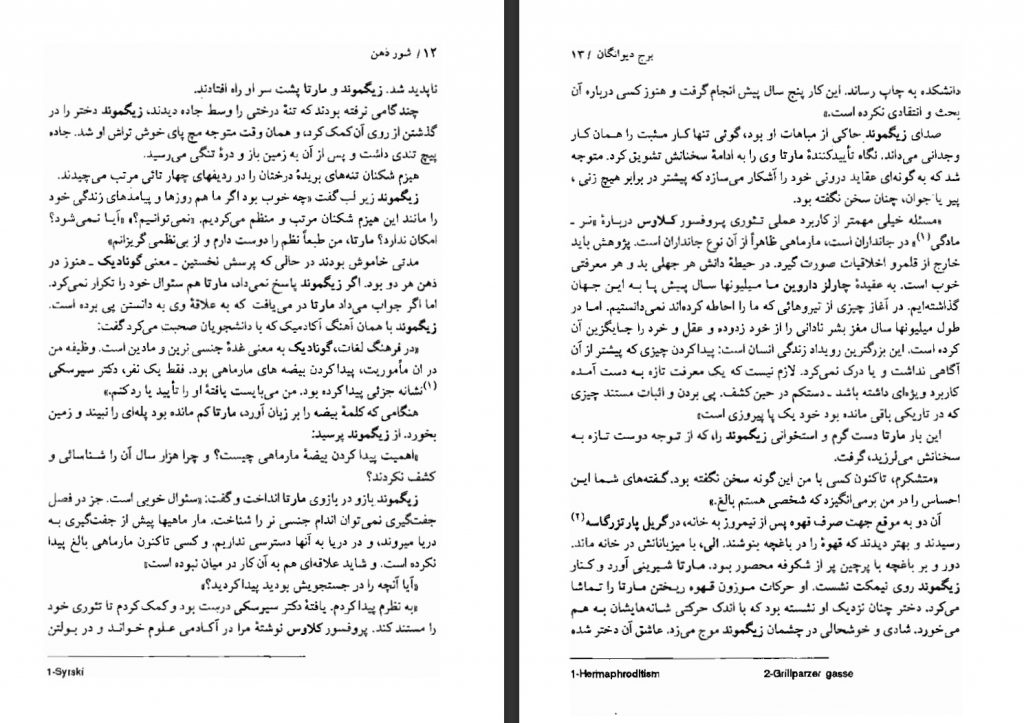 ۱۲/ شور ذهن
ناپدید شد. زیگموند و مارتا پشت سر او راه افتادند.
چندگامی نرفته بودند که تنهٔ درختی را وسط جاده دیدند، زیگموند دختر را در
گذشتن از روی آن کمک کرد، و همان وقت متوجه مچ پای خوش تراش او شد. جاده
پیچ تندی داشت و پس از آن به زمین باز و درهٔ تنگی می‌رسید.
هیزم شکنان تنه‌های بریدهٔ درختان را در ردیفهای چهار تائی مرتب می‌چیدند.
زیگموند زیر لب گفت «چه خوب بود اگر ما هم روزها و پیامدهای زندگی خود
را مانند این هیزم شکنان مرتب و منظم می‌کردیم. «نمی‌توانیم؟» «آیا نمی‌شود؟
امکان ندارد؟ مارتا، من طبعاً نظم را دوست دارم و از بی‌نظمی گریزانم»
مدتی خاموش بودند در حالی که پرسش نخستین ـ معنی گونادیک ـ هنوز در
ذهن هر دو بود. اگر زیگموند پاسخ نمی‌داد، مارتا هم سئوال خود را تکرار نمی‌کرد.
اما اگر جواب می‌داد مارتا در می‌یافت که به علاقهٔ وی به دانستن پی برده است.
زیگموند با همان آهنگ آکادمیک که با دانشجویان صحبت می‌کرد گفت:
«در فرهنگ لغات، گونادیک به معنی غدهٔ جنسی نرین و مادین است. وظیفه من
در ان مأموریت، پیدا کردن بیضه های مارماهی بود. فقط یک نفر، دکتر سیرسکی
(۱)نشانه جزئی پیدا کرده بود. من می‌بایست یافتهٔ او را تأیید یا رد کنم.»
هنگامی که کلمهٔ بیضه را بر زبان آورد، مارتا کم مانده بود پله‌ای را نبیند و زمین
بخورد. از زیگموند پرسید:
«اهمیت پیدا کردن بیضهٔ مارماهی چیست؟ و چرا هزار سال آن را شناسائی و
کشف نکردند؟
زیگموند بازو در بازوی مارتا انداخت و گفت: «سئوال خوبی است. جز در فصل
جفت‌گیری نمی‌توان اندام جنسی نر را شناخت. مار ماهیها پیش از جفت‌گیری به
دریا میروند، و در دریا به آنها دسترسی نداریم. و کسی تاکنون مارماهی بالغ پیدا
نکرده است. و شاید علاقه‌ای هم به آن کار در میان نبوده است»
«آیا آنچه را در جستجویش بودید پیدا کردید؟»
«به نظرم پیدا کردم. یافتهٔ دکتر سیرسکی درست بود و کمک کردم تا تئوری خود
را مستند کند. پروفسور کلاوس نوشتهٔ مرا در آکادمی علوم خواند و در بولتن
1-Syrski
برج دیوانگان /۱۳
دانشکده به چاپ رساند. این کار پنج سال پیش انجام گرفت و هنوز کسی درباره آن
بحث و انتقادی نکرده است.»
صدای زیگموند حاکی از مباهات او بود، گوئی تنها کار مثبت را همان کار
وجدانی می‌داند. نگاه تأییدکنندهٔ مارتا وی را به ادامهٔ سخنانش تشویق کرد. متوجه
شد که به گونه‌ای عقاید درونی خود را آشکار می‌سازد که پیشتر در برابر هیچ زنی ،
پیر یا جوان، چنان سخن نگفته بود.
«مسئله خیلی مهمتر از کاربرد عملی تئوری پروفسور کلاوس دربارهٔ «نر ـ
مادگی(۱)» در جانداران است، مارماهی ظاهراً از آن نوع جانداران است. پژوهش باید
خارج از قلمرو اخلاقیات صورت گیرد. در حیطهٔ دانش هر جهلی بد و هر معرفتی
خوب است. به عقیدهٔ چارلز داروین ما میلیونها سال پیش پا به این جهان
گذاشته‌ایم. در آغاز چیزی از نیروهائی که ما را احاطه کرده‌اند نمی‌دانستیم. اما در
طول میلیونها سال مغز بشر نادانی را از خود زدوده و عقل و خرد را جایگزین آن
کرده است. این بزرگترین رویداد زندگی انسان است: پیدا کردن چیزی که پیشتر از آن
آگاهی نداشت و یا درک نمی‌کرد. لازم نیست که یک معرفت تازه به دست آمده
کاربرد ویژه‌ای داشته باشد ـ دستکم در حین کشف. پی بردن و اثبات مستند چیزی
که در تاریکی باقی مانده بود خود یک پا پیروزی است»
این بار مارتا دست گرم و استخوانی زیگموند را، که از توجه دوست تازه به
سخنانش می‌لرزید، گرفت.
«متشکرم، تاکنون کسی با من این گونه سخن نگفته بود. گفته‌های شما این
احساس را در من برمی‌انگیزد که شخصی هستم بالغ.»
آن دو به موقع جهت صرف قهوه پس از نیمروز به خانه، در گریل پارتزرگاسه(۲)
رسیدند و بهتر دیدند که قهوهٔ را در باغچه بنوشند. الی، با میزبانانش در خانه ماند.
دور و بر باغچه با پرچین پر از شکوفه محصور بود. مارتا شیرینی آورد و کنار
زیگموند روی نیمکت نشست. او حرکات موزون قهوه ریختن مارتا را تماشا
می‌کرد. دختر چنان نزدیک او نشسته بود که با اندک حرکتی شانه‌هایشان به هم
می‌خورد. شادی و خوشحالی در چشمان زیگموند موج می‌زد. عاشق آن دختر شده
1-Hermaphroditism 2-Grillparzer gasse